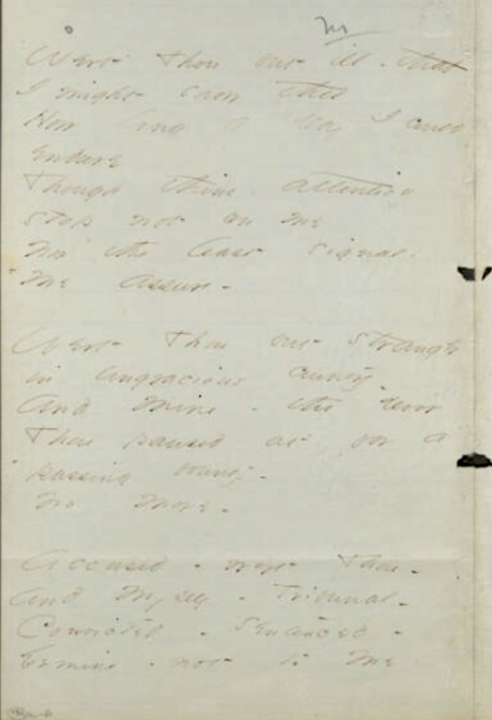 Wert Thou but ill - that
I might show thee
How long a Day I could
Endure
Though thine attention
stop not on me
Nor the least signal,
Me Assure -
Wert Thou but Stranger
in ungracious country -
And Mine - the Door
Thou paused at, for a
passing bounty -
No More -
Accused - wert Thou -
And Myself - Tribunal -
Convicted - Sentenced -
Ermine - not to Me